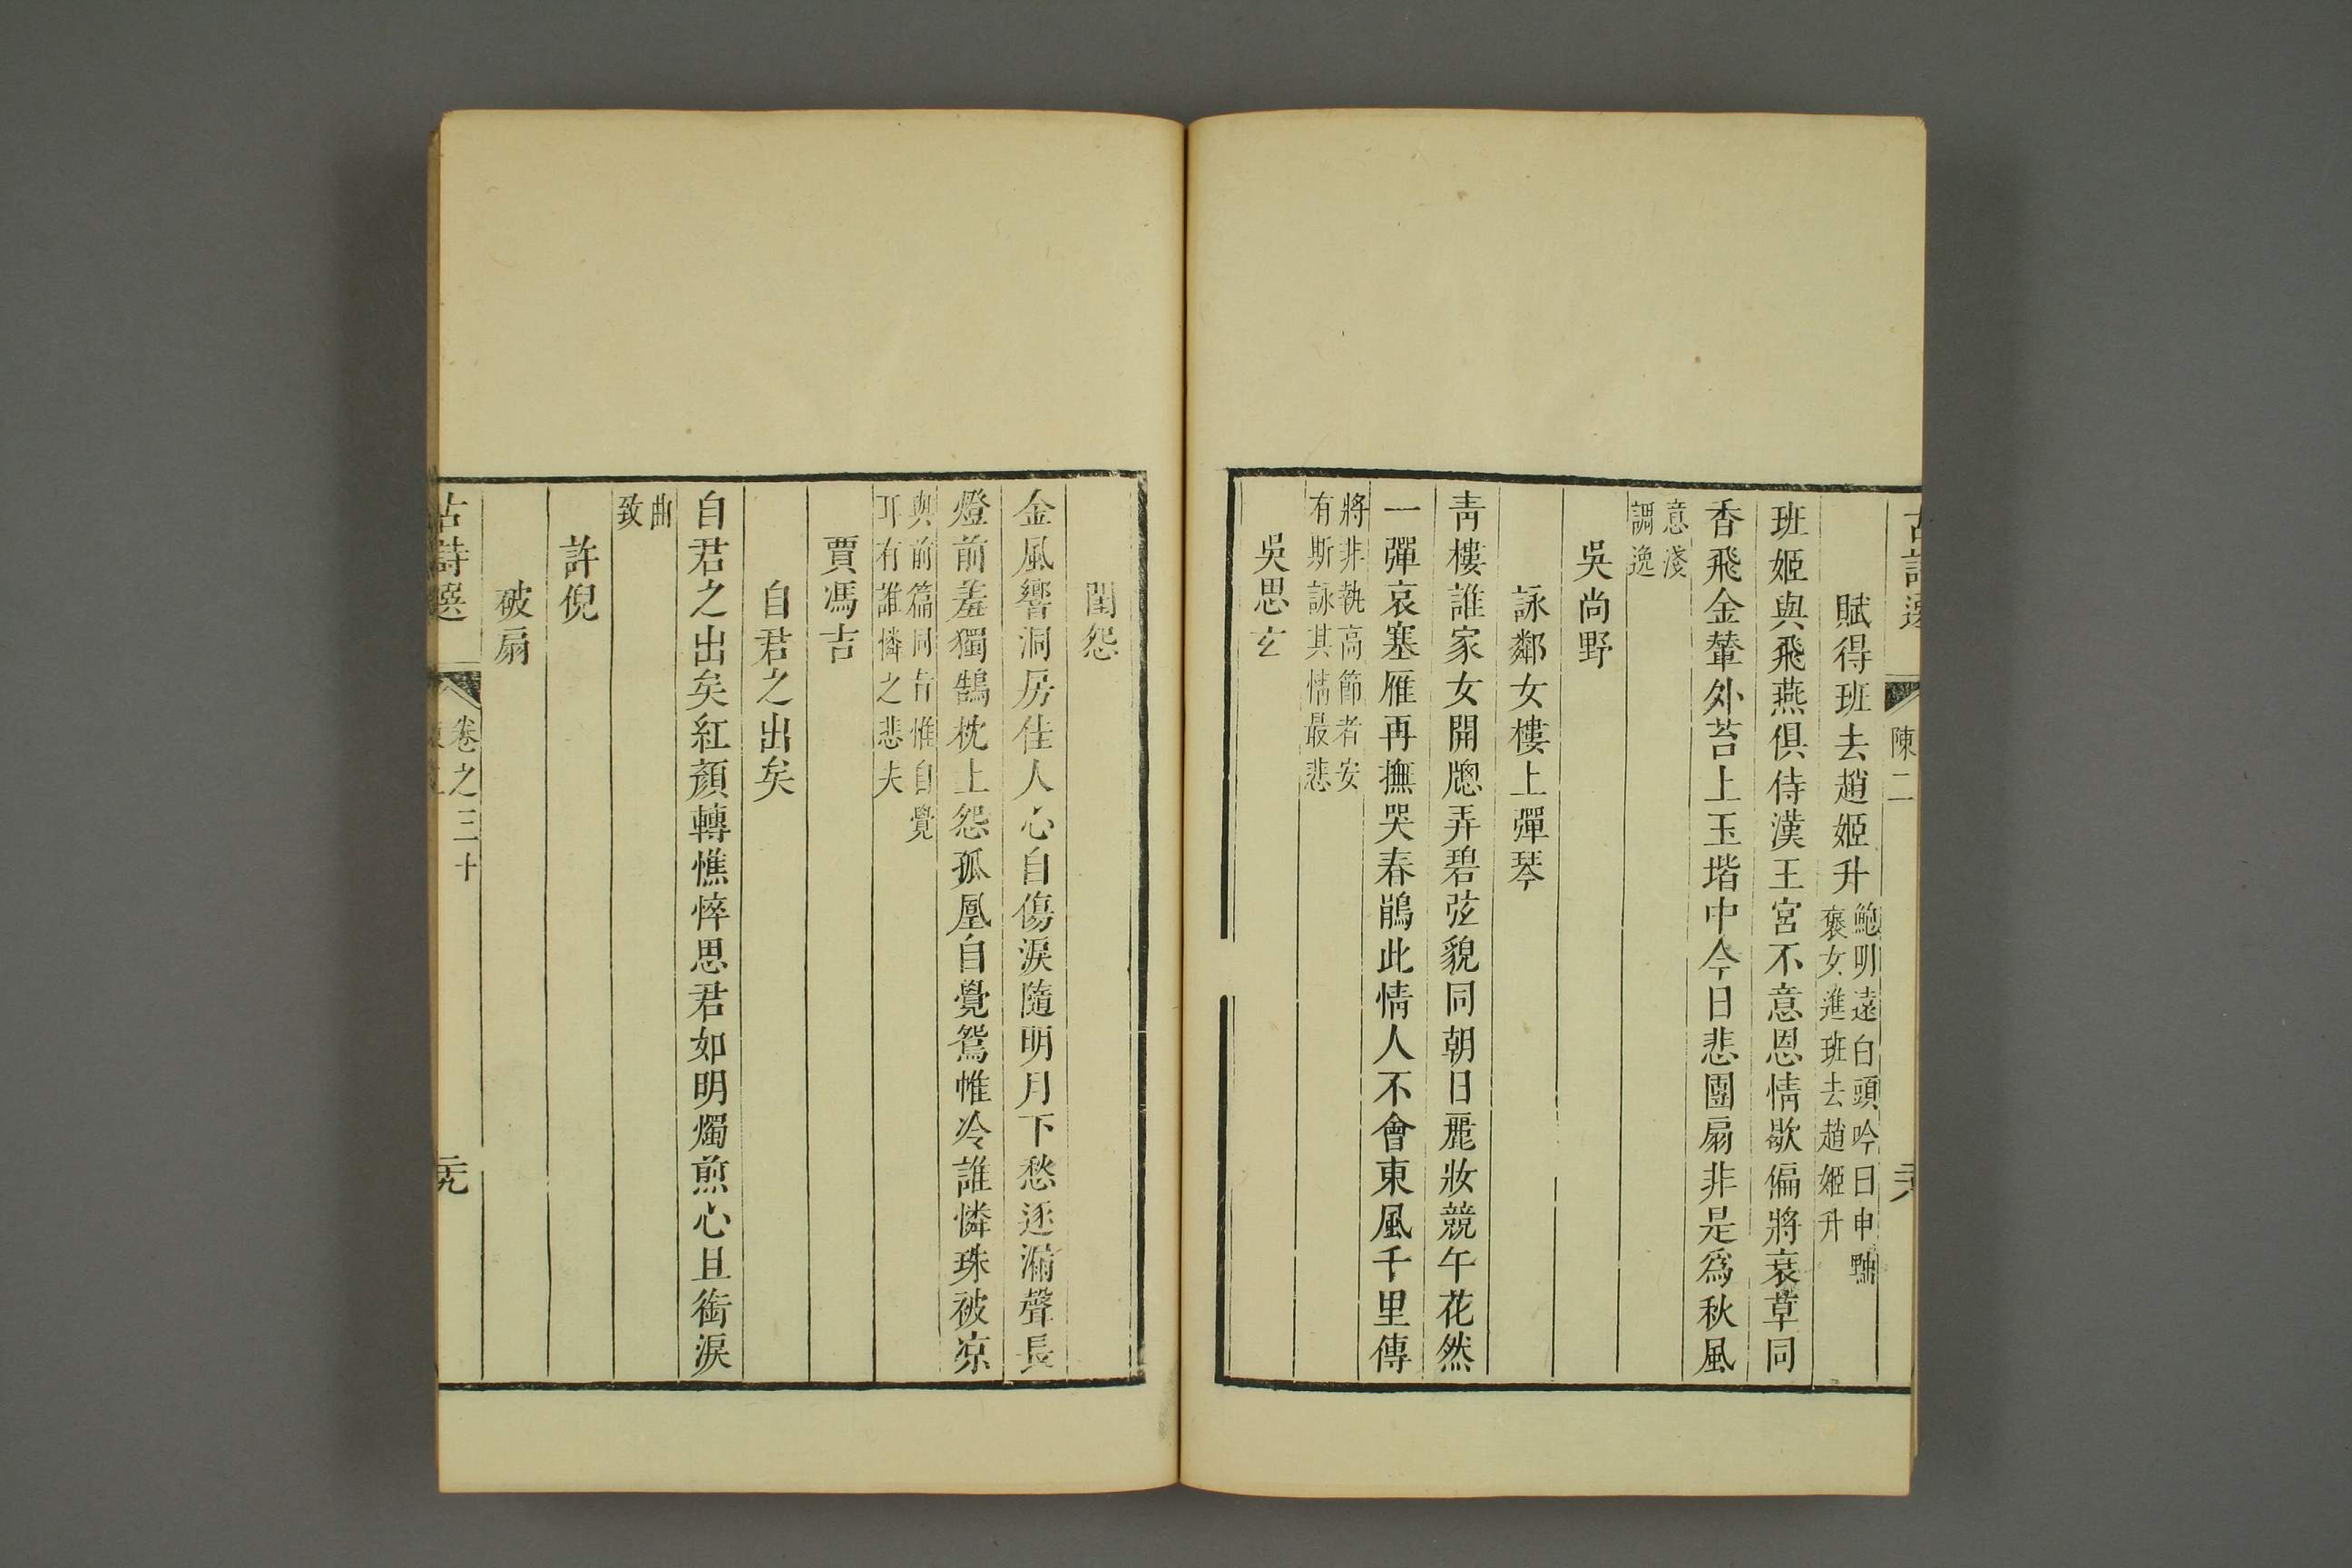 陳二
賦得班去趙姬升
鮑明遠白頭吟曰申黜
褒女進班去趙姬升
班姬與飛燕俱侍漢王宮不意恩情歇偏將衰草同
香飛金輦外苔上玉堦中今日悲團扇非是爲秋風
意淺
調逸
吳尚野
詠鄰女樓上彈琴
靑樓誰家女開牕弄碧弦貌同朝日麗妝競午花然
一彈哀塞雁再撫哭春鵑此情人不會東風千里傳
將非執高節者安
有斯詠其情最悲
吳思玄
閨怨
金風響洞房佳人心自傷淚隨明月下愁逐漏聲長
燈前羞獨鵠枕上怨孤凰自覺鴛帷冷誰憐珠被凉
與前篇同旨惟自覺
耳有誰憐之悲夫
賈馮吉
自君之出矣
自君之出矣紅顏轉憔悴思君如明燭煎心且銜淚
曲
致
許倪
破扇
古詩選
卷之三十